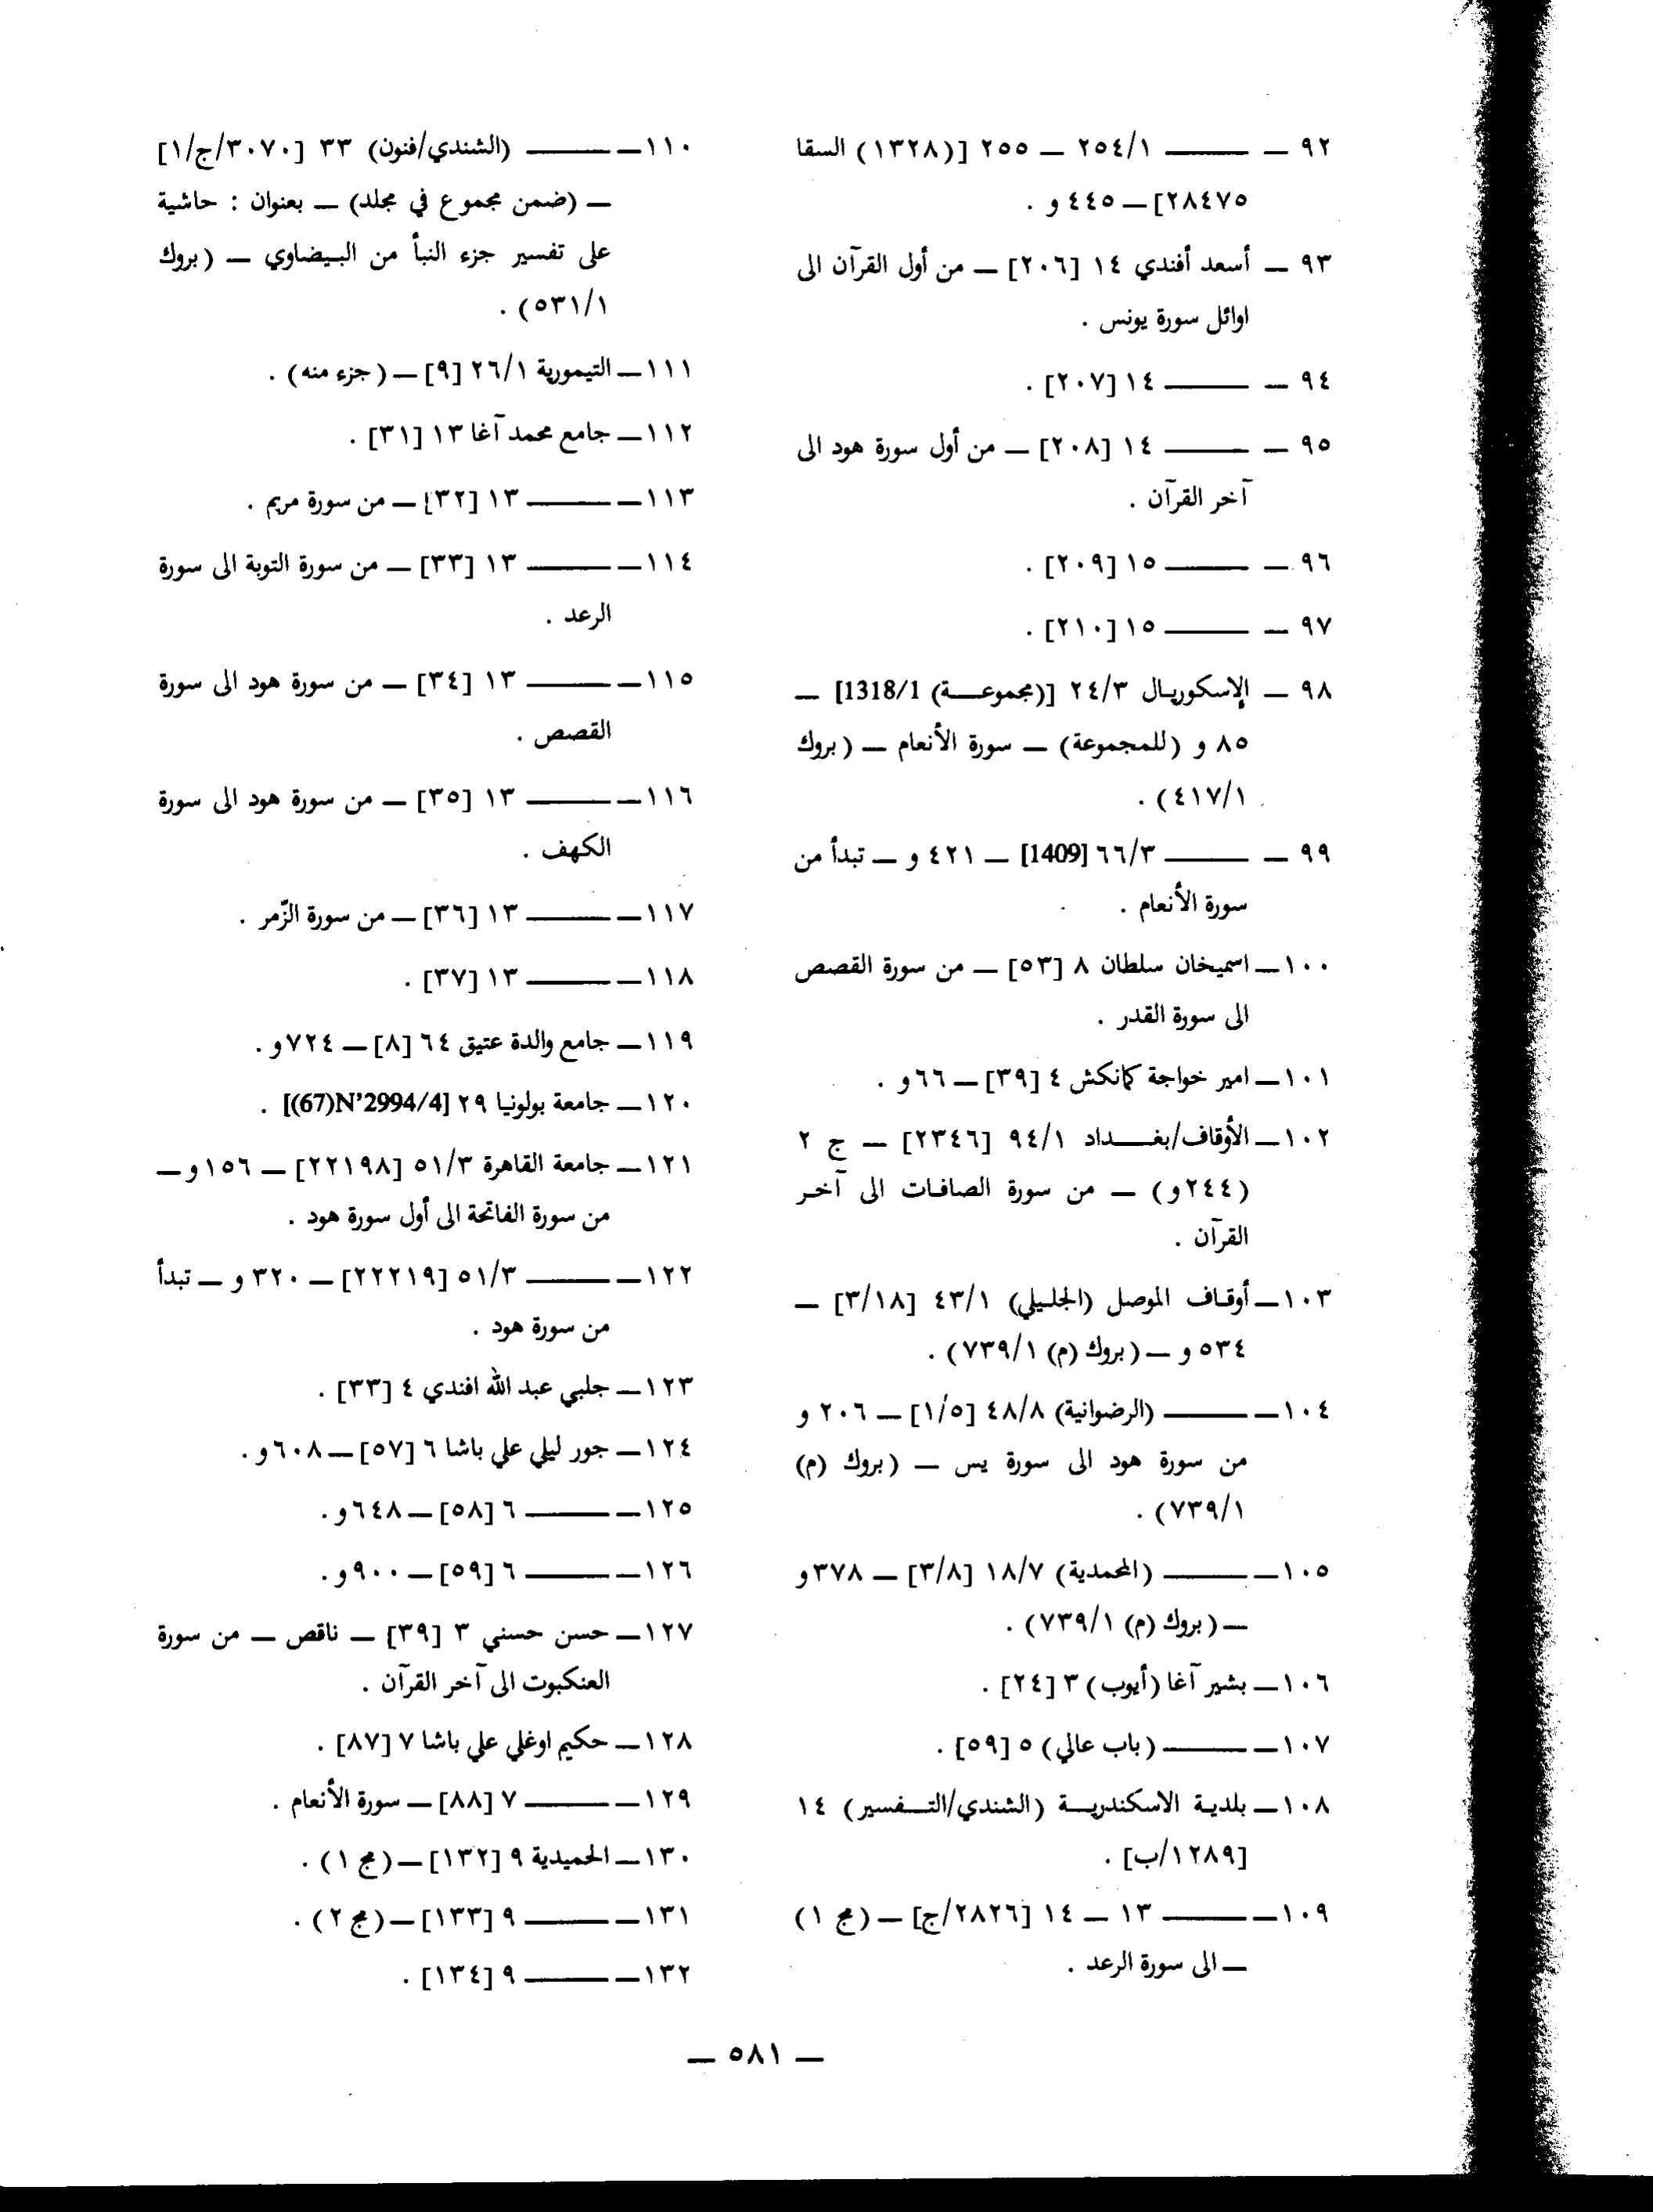 ٩٢ — ——— ٢٥٤/١ — ٢٥٥ [(١٣٢٨) السقا
٢٨٤٧٥] — ٤٤٥ و .
٩٣ — أسعد أفندي ١٤ [٢٠٦] — من أول القرآن الى
اوائل سورة يونس .
٩٤ — ——— ١٤ [٢٠٧] .
٩٥ — ——— ١٤ [٢٠٨] — من أول سورة هود الى
آخر القرآن .
٩٦ — ——— ١٥ [٢٠٩] .
٩٧ — ——— ١٥ [٢١٠] .
٩٨ — الإسكوريال ٢٤/٣ [(مجموعة) 1318/1] —
٨٥ و (للمجموعة) — سورة الأنعام — (بروك
٤١٧/١) .
٩٩ — ——— ٦٦/٣ [1409] — ٤٢١ و — تبدأ من
سورة الأنعام .
١٠٠ — اسميخان سلطان ٨ [٥٣] — من سورة القصص
الى سورة القدر .
١٠١ — امير خواجة كمانكش ٤ [٣٩] — ٦٦ و .
١٠٢ — الأوقاف/بغداد ٩٤/١ [٢٣٤٦] — ج ٢
(٢٤٤و) — من سورة الصافات الى آخر
القرآن .
١٠٣ — أوقاف الموصل (الجليلي) ٤٣/١ [٣/١٨] —
٥٣٤ و — (بروك (م) ٧٣٩/١) .
١٠٤ — ——— (الرضوانية) ٤٨/٨ [١/٥] — ٢٠٦ و
من سورة هود الى سورة يس — (بروك (م)
٧٣٩/١) .
١٠٥ — ——— (المحمدية) ١٨/٧ [٣/٨] — ٣٧٨و
— (بروك (م) ٧٣٩/١) .
١٠٦ — بشير آغا (أيوب) ٣ [٢٤] .
١٠٧ — ——— (باب عالي) ٥ [٥٩] .
١٠٨ — بلدية الاسكندرية (الشندي/التفسير) ١٤
[١٢٨٩/ب] .
١٠٩ — ——— ١٣ — ١٤ [٢٨٢٦/ج] — (مج ١)
— الى سورة الرعد .
١١٠ — ——— (الشندي/فنون) ٣٣ [٣٠٧٠/ج/١]
— (ضمن مجموع في مجلد) — بعنوان : حاشية
على تفسير جزء النبأ من البيضاوي — (بروك
٥٣١/١) .
١١١ — التيمورية ٢٦/١ [٩] — (جزء منه) .
١١٢ — جامع محمد آغا ١٣ [٣١] .
١١٣ — ——— ١٣ [٣٢] — من سورة مريم .
١١٤ — ——— ١٣ [٣٣] — من سورة التوبة الى سورة
الرعد .
١١٥ — ——— ١٣ [٣٤] — من سورة هود الى سورة
القصص .
١١٦ — ——— ١٣ [٣٥] — من سورة هود الى سورة
الكهف .
١١٧ — ——— ١٣ [٣٦] — من سورة الزّمر .
١١٨ — ——— ١٣ [٣٧] .
١١٩ — جامع والدة عتيق ٦٤ [٨] — ٧٢٤ و .
١٢٠ — جامعة بولونيا ٢٩ [(67)N'2994/4)] .
١٢١ — جامعة القاهرة ٥١/٣ [٢٢١٩٨] — ١٥٦ و —
من سورة الفاتحة الى أول سورة هود .
١٢٢ — ——— ٥١/٣ [٢٢٢١٩] — ٣٢٠ و — تبدأ
من سورة هود .
١٢٣ — جلبي عبد الله افندي ٤ [٣٣] .
١٢٤ — جور ليلي علي باشا ٦ [٥٧] — ٦٠٨ و .
١٢٥ — ——— ٦ [٥٨] — ٦٤٨ و .
١٢٦ — ——— ٦ [٥٩] — ٩٠٠ و .
١٢٧ — حسن حسني ٣ [٣٩] — ناقص — من سورة
العنكبوت الى آخر القرآن .
١٢٨ — حكيم اوغلي علي باشا ٧ [٨٧] .
١٢٩ — ——— ٧ [٨٨] — سورة الأنعام .
١٣٠ — الحميدية ٩ [١٣٢] — (مج ١) .
١٣١ — ——— ٩ [١٣٣] — (مج ٢) .
١٣٢ — ——— ٩ [١٣٤] .
— ٥٨١ —